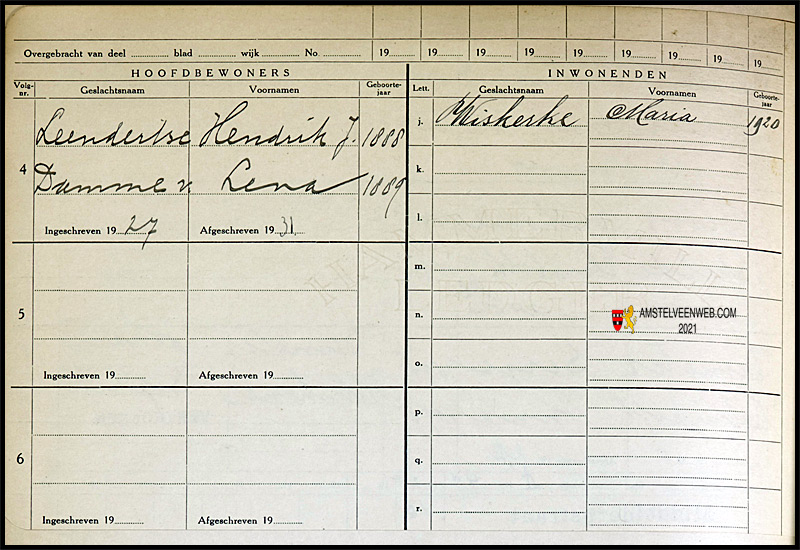 Overgebracht van deel ............ blad ........ wijk ........ No. ........ 19 19 19 19 19 19 19 19 19
HOOFDBEWONERS
Volg-nr. Geslachtsnaam Voornamen Geboorte-jaar
4
Leendertse Hendrik J. 1888
Damme v. Lena 1889
Ingeschreven 1927 Afgeschreven 1931
5
Ingeschreven 19........ Afgeschreven 19........
6
Ingeschreven 19........ Afgeschreven 19........
INWONENDEN
Lett. Geslachtsnaam Voornamen Geboorte-jaar
j. Wiskerke Maria 1920
k.
l.
m.
n.
o.
p.
q.
r.
AMSTELVEENWEB.COM
2021